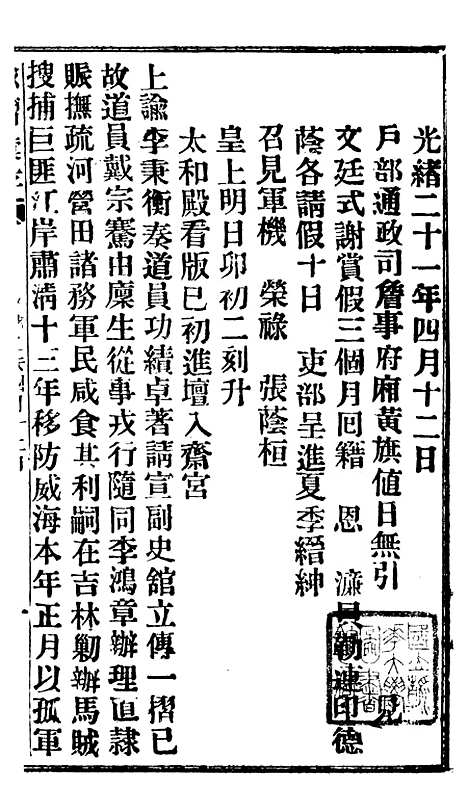 光緒二十一年四月十二日
戶部通政司詹事府廂黃旗值日無引 見
文廷式謝賞假三個月回籍 恩 濂貝勒連印德
蔭各請假十日 吏部呈進夏季縉紳
召見軍機 榮祿 張蔭桓
皇上明日卯初二刻升
太和殿看版巳初進壇入齋宮
上諭李秉衡奏道員功績卓著請宣副史舘立傳一摺已
故道員戴宗騫由廩生從事戎行隨同李鴻章辦理直隸
賑撫疏河營田諸務軍民咸食其利嗣在吉林勦辦馬賊
搜捕巨匪江岸肅淸十三年移防威海本年正月以孤軍